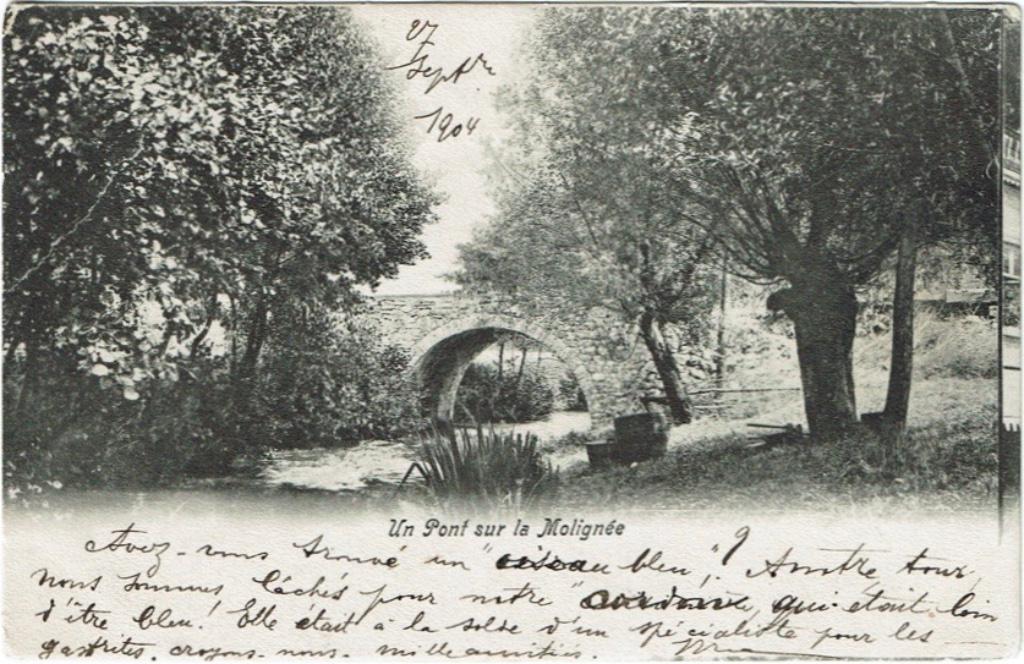 27
Septbr
1904
Un Pont sur la Molignée
Avez-vous trouvé un "oiseau bleu"? A notre tour,
nous sommes lâchés pour notre qui était loin
d'être bleu! Elle était à la solde d'un spécialiste pour les
gastrites, croyons-nous. mille amitiés.